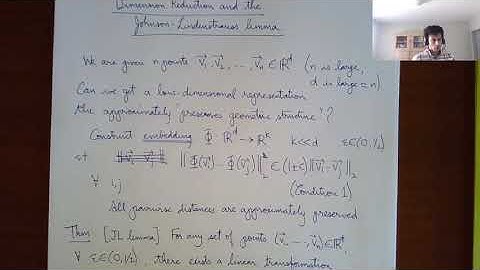 Dimension Reduction and the
Johnson-Lindenstrauss lemma
We are given n points v⃗₁, v⃗₂, ..., v⃗ₙ ∈ ℝᵈ (n is large,
d is large ≈ n)
Can we get a low-dimensional representation
the approximately "preserves geometric structure"?
Construct embedding Φ: ℝᵈ → ℝᵏ k<<d ε∈(0,½)
st ‖Φ(v⃗ᵢ) - Φ(v⃗ⱼ)‖₂² ∈ (1±ε)‖v⃗ᵢ - v⃗ⱼ‖₂
∀ i,j (Condition 1)
All pairwise distances are approximately preserved
Thm [JL lemma] For any set of points (v⃗₁ ..., v⃗ₙ)∈ℝᵈ,
∀ ε∈(0,½), there exists a linear transformation